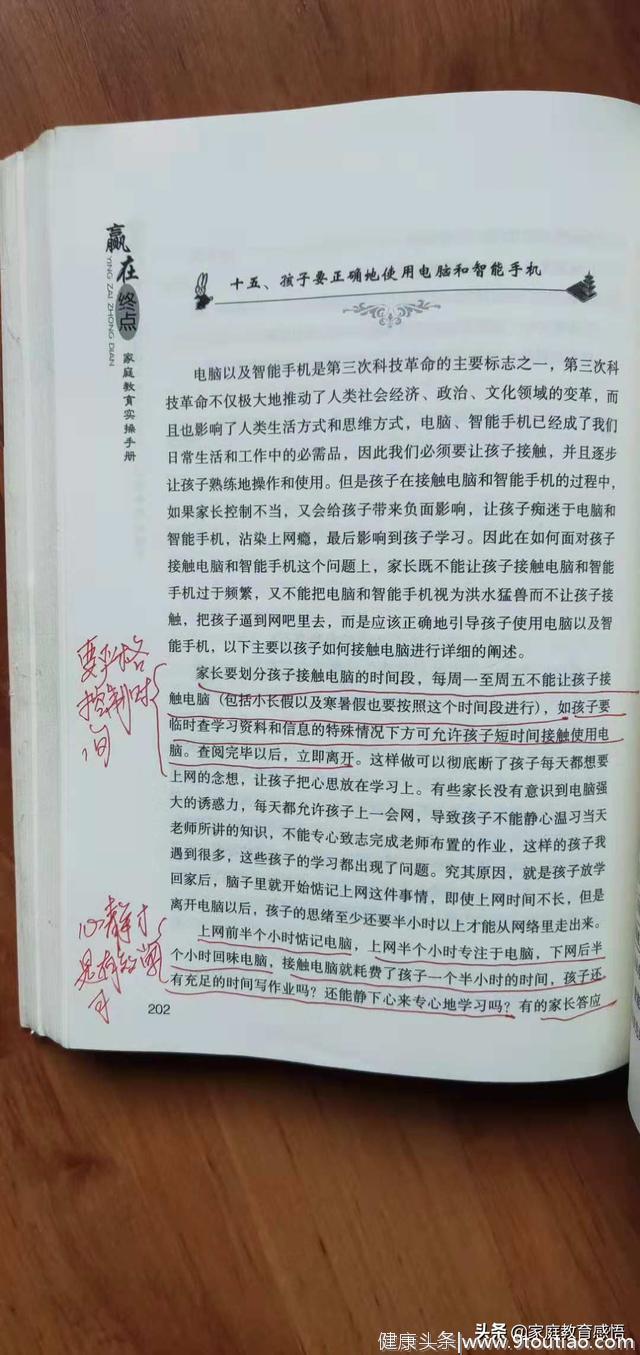 赢在终点
YING ZAI ZHONG DIAN
家庭教育实操手册
十五、孩子要正确地使用电脑和智能手机
电脑以及智能手机是第三次科技革命的主要标志之一，第三次科
技革命不仅极大地推动了人类社会经济、政治、文化领域的变革，而
且也影响了人类生活方式和思维方式，电脑、智能手机已经成了我们
日常生活和工作中的必需品，因此我们必须要让孩子接触，并且逐步
让孩子熟练地操作和使用。但是孩子在接触电脑和智能手机的过程中，
如果家长控制不当，又会给孩子带来负面影响，让孩子痴迷于电脑和
智能手机，沾染上网瘾，最后影响到孩子学习。因此在如何面对孩子
接触电脑和智能手机这个问题上，家长既不能让孩子接触电脑和智能
手机过于频繁，又不能把电脑和智能手机视为洪水猛兽而不让孩子接
触，把孩子逼到网吧里去，而是应该正确地引导孩子使用电脑以及智
能手机，以下主要以孩子如何接触电脑进行详细的阐述。
家长要划分孩子接触电脑的时间段，每周一至周五不能让孩子接
触电脑（包括小长假以及寒暑假也要按照这个时间段进行），如孩子要
临时查学习资料和信息的特殊情况下方可允许孩子短时间接触使用电
脑。查阅完毕以后，立即离开。这样做可以彻底断了孩子每天都想要
上网的念想，让孩子把心思放在学习上。有些家长没有意识到电脑强
大的诱惑力，每天都允许孩子上一会网，导致孩子不能静心温习当天
老师所讲的知识，不能专心致志完成老师布置的作业，这样的孩子我
遇到很多，这些孩子的学习都出现了问题。究其原因，就是孩子放学
回家后，脑子里就开始惦记上网这件事情，即使上网时间不长，但是
离开电脑以后，孩子的思绪至少还要半小时以上才能从网络里走出来。
上网前半个小时惦记电脑，上网半个小时专注于电脑，下网后半
个小时回味电脑，接触电脑就耗费了孩子一个半小时的时间，孩子还
有充足的时间写作业吗？还能静下心来专心地学习吗？有的家长答应
202
要严格
控制时
间
心静才
头条 @家庭教育感悟
健康头条|www.9toutiao.com